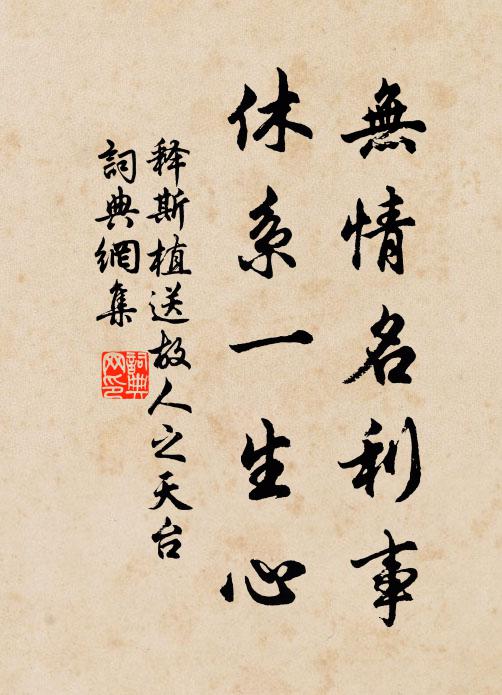 無情名利事
休系一生心
释斯植送故人之天台
詞典網集
詞典
网印